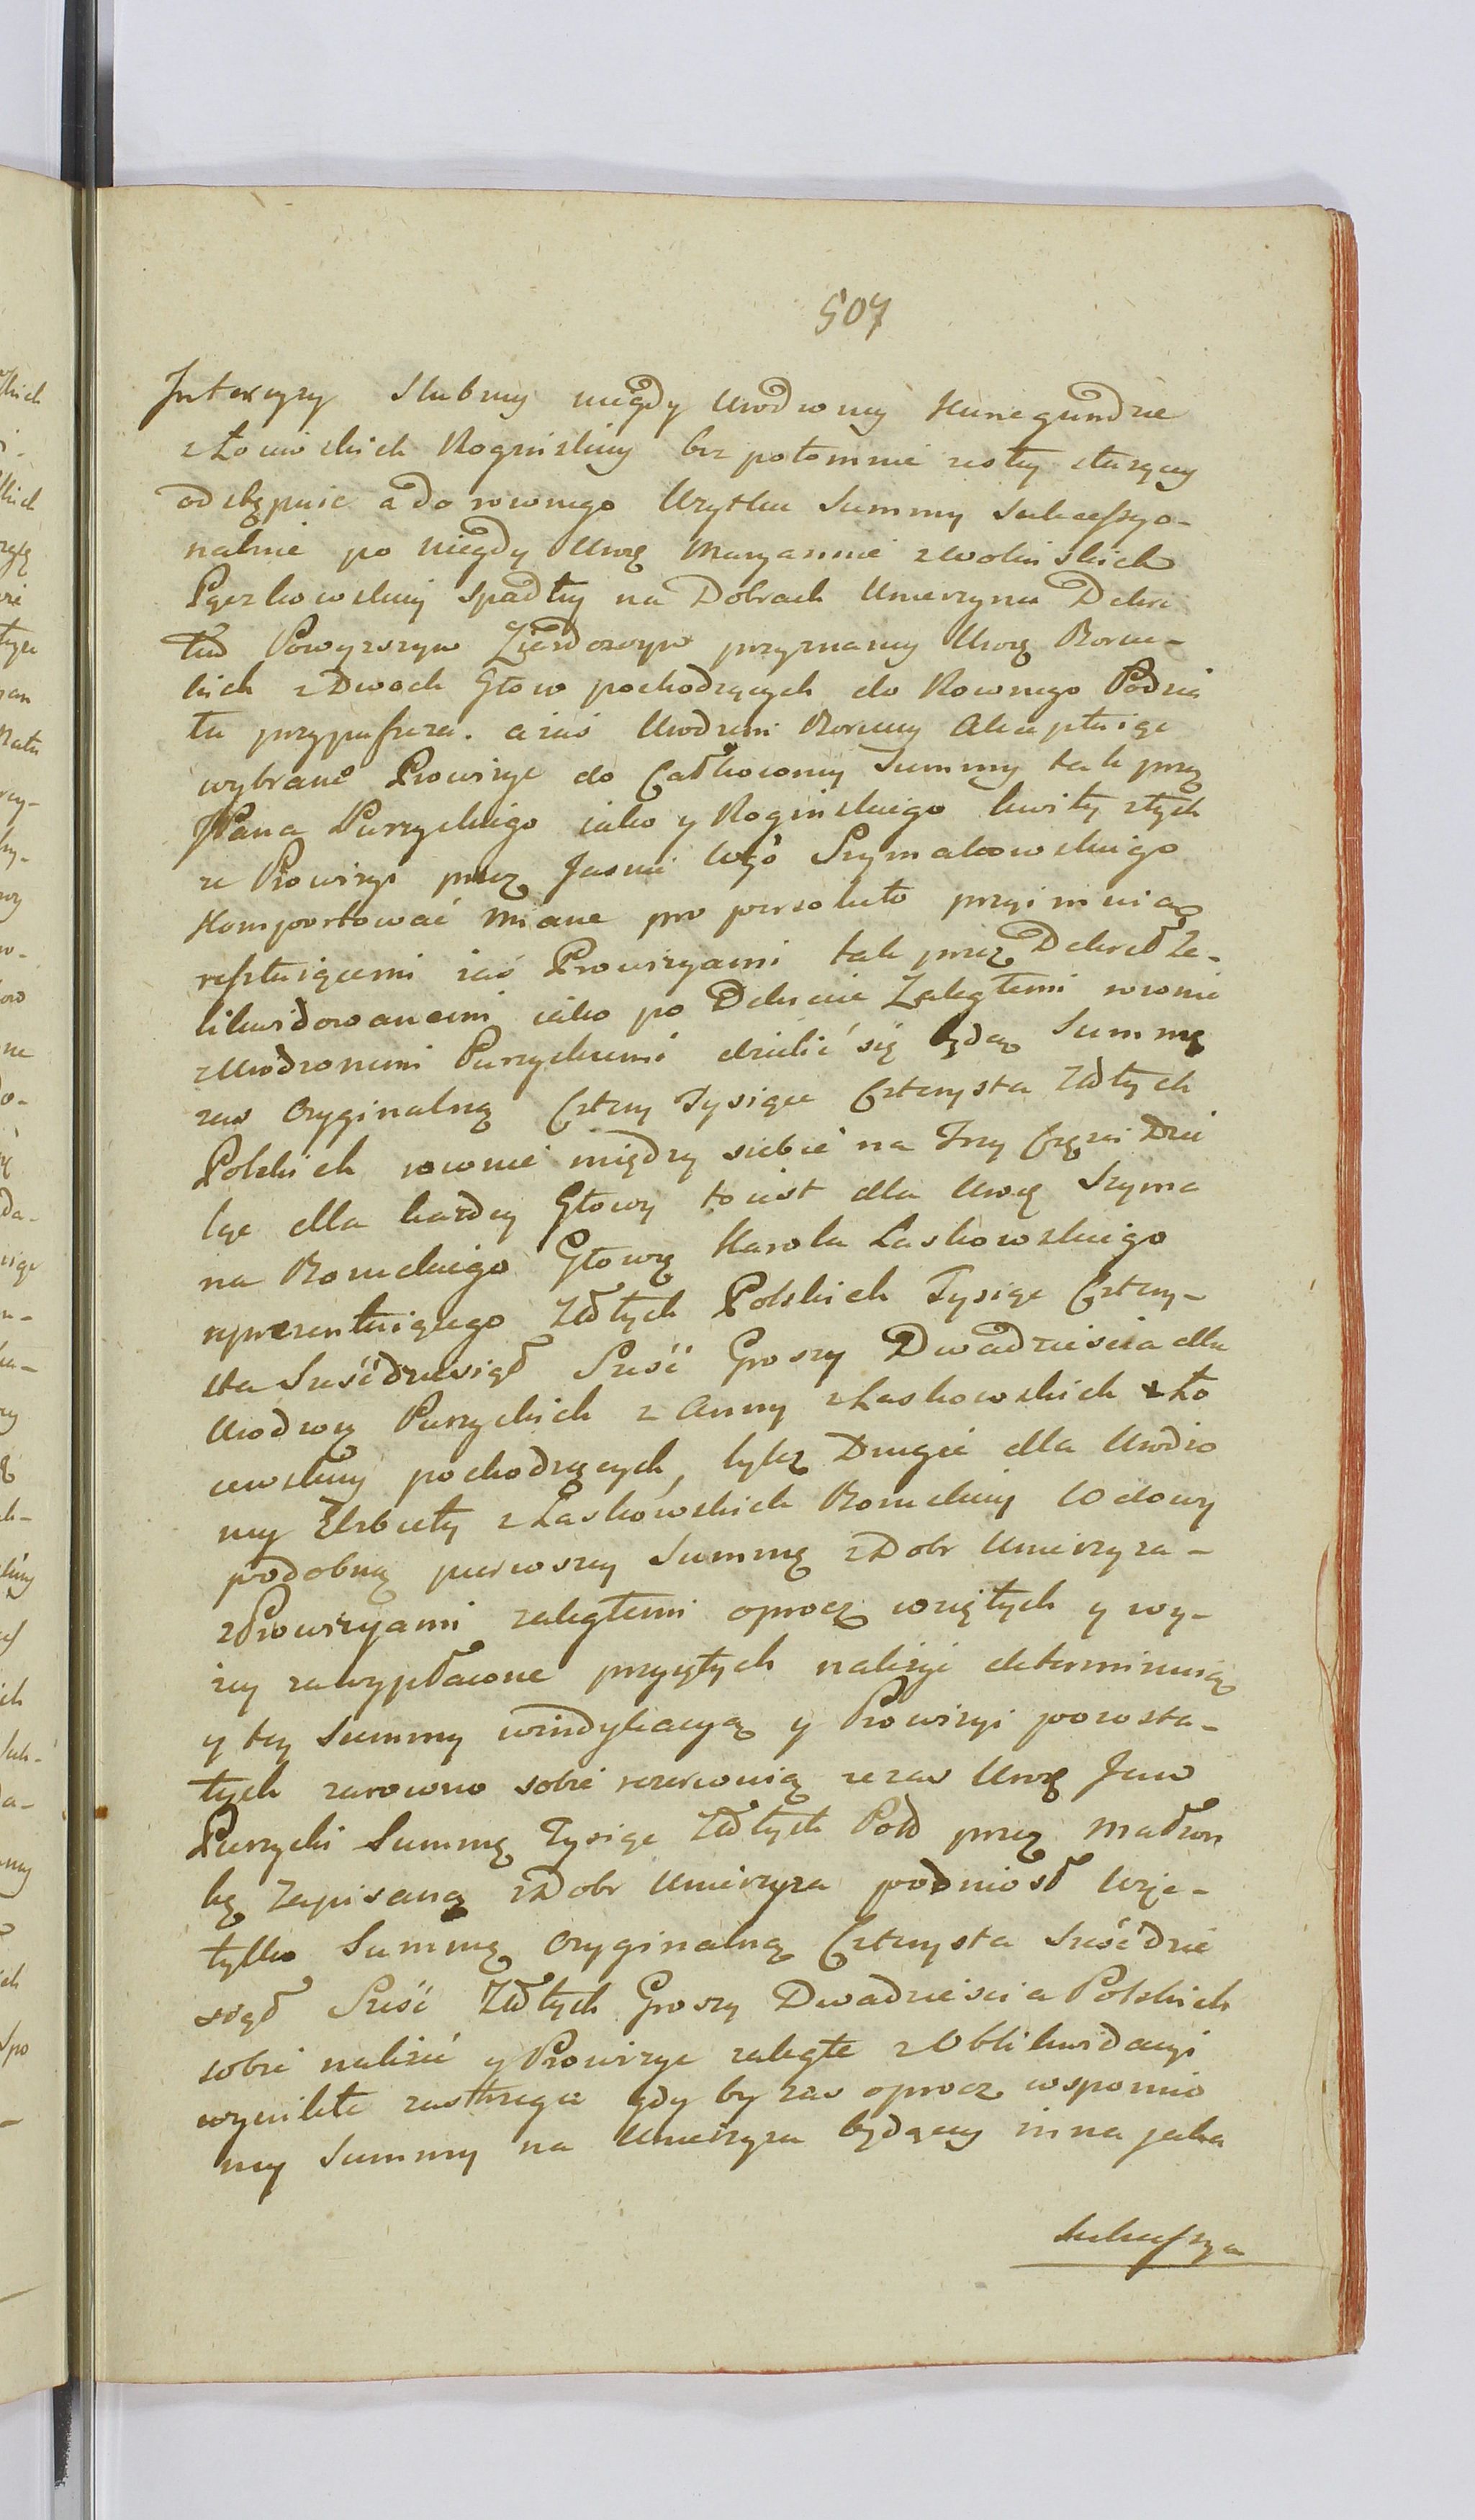 507
Intercyzy Slubny niegdy Urodzony Kunegundzie
z Łoniewskich Rogińskiey bez potomnie zeszły służący
odstępuie a do rownego Uzytku Summy Sukcessyo-
nalnie po niegdy Urą Maryannie z Wolinskich
Pączkowskiey spadłey na Dobrach Umierzynu Dekre
tem Powyzszym Zjazdowym przyznaney Urą Borue-
kich z Dwoch Głow pochodzących do Rownego Podzia
łu przypuszcza. a zaś Urodzeni Akceptuiąc
wybrane Prowizye do Całkowey Summy tak przez
JPana Purzyckiego iako y Roginskiego kwity z tych
ze Prowizyi przez Jasnie Wgo Szymakowskiego
Komportować miane pro persoluto przyimuią
resztuiącemi zaś Prowizyami tak przez Dekret Ze-
likwidowanemi iako po Dekrecie Zaległemi rownie
z Urodzonemi Purzyckiemi dzielić się będą Summę
zas Oryginalną Cztery Tysiące Czterysta Złłtych
Polskich rownie między siebie na Trzy Części Dzie
ląc dla kazdey Głowy to iest dla Urą Szymo
na Głowę Karola Laskowskiego
reprezentuiącego Złłtych Polskich Tysiąc Cztery-
sta Sześćdziesiąt Sześć Groszy Dwadziescia dla
Urodzonych Purzyckich z Anny z Laskowskich z Ło
iewskiey pochodzących, tylez Drugie dla Urodzo
ney Elzbiety z Laskowskich Wdowy
podobną pierwszey Summę z Dobr Umierzyza-
z Prowizyami zaległemi oprocz wziętych y wy-
zey za wypłacone przyjętych nalizyć determinuią
y tey Summy windykacyą y Prowizyi pozosta-
łych zarowno sobie rezerwuią ze zas Urą Jaw
Purzycki Summę Tysiąc Złłtych Pold przez Małżon
kę Zapisaną z Dobr Umierzyza podniosł Wzje-
tylko Summę Oryginalną Czterysta Sześćdzie
siąt Sześć Złłtych Groszy Dwadziescia Polskich
sobie nalizie y Prowizye zaległe z Oblikwidacyi
wynikłe zastrzega gdy by zas oprocz wspomnio
ney Summy na Umierzyza będącey inna jaka
Sukcessya